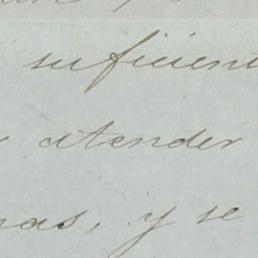 suficient
atender
nas, y se